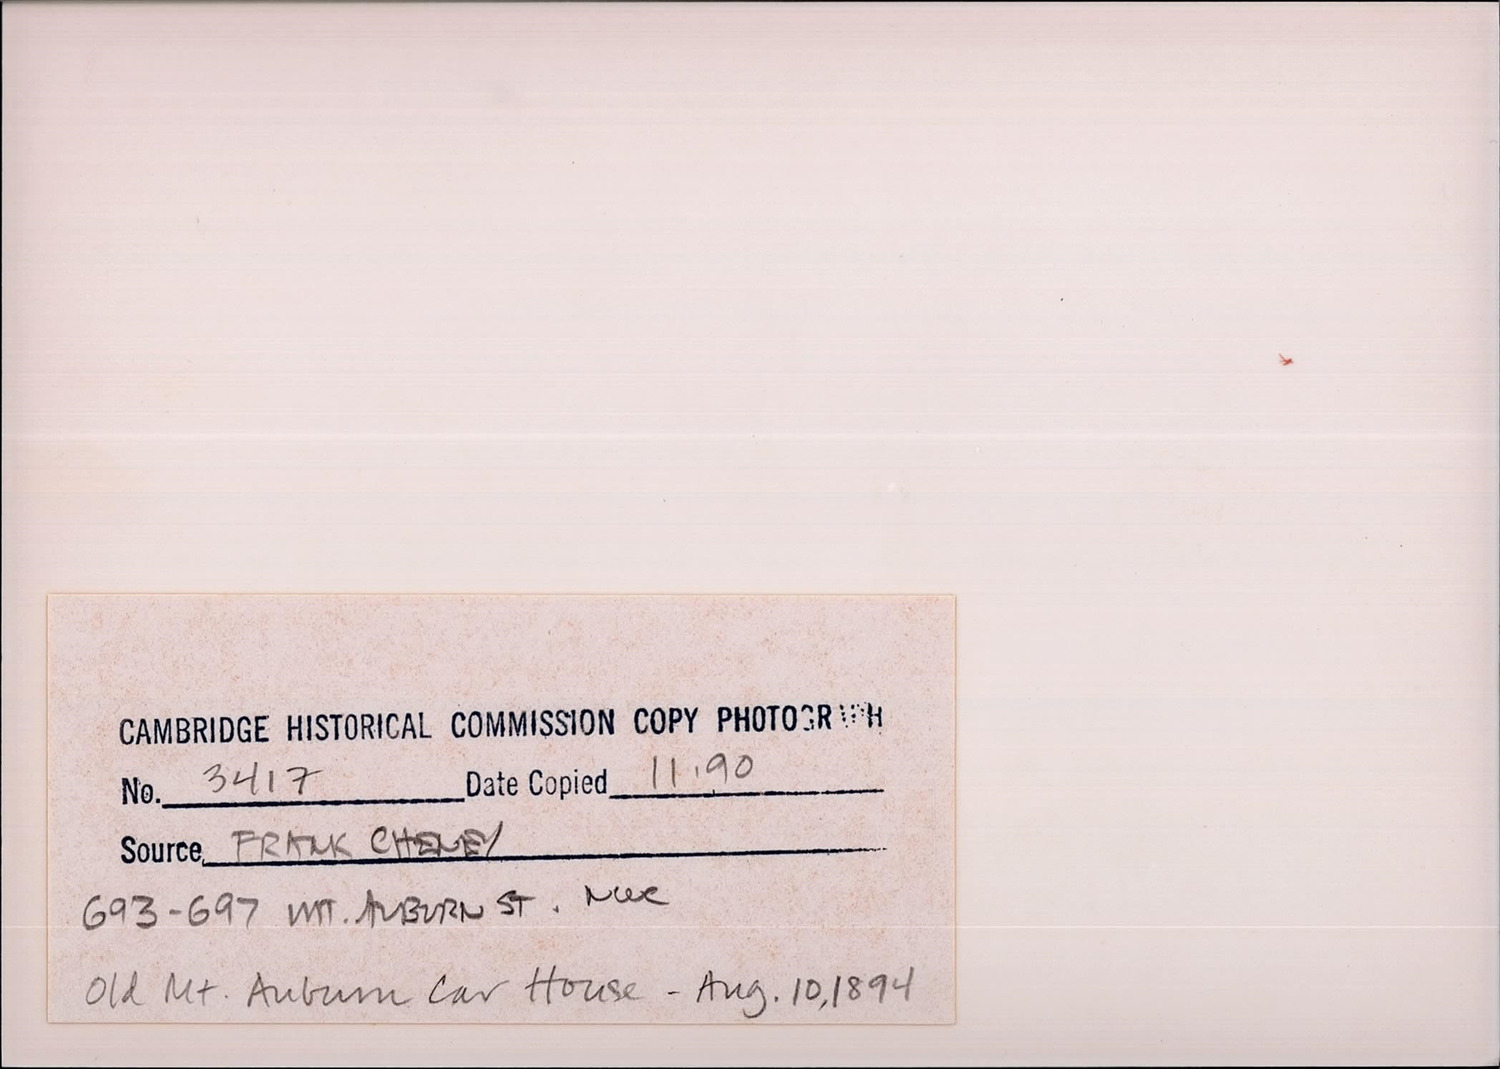 CAMBRIDGE HISTORICAL COMMISSION COPY PHOTOGRAPH
No. 3417 Date Copied 11.90
Source FRANK CHENEY
693-697 MT. AUBURN ST. NWC
Old Mt. Auburn Car House - Aug. 10, 1894